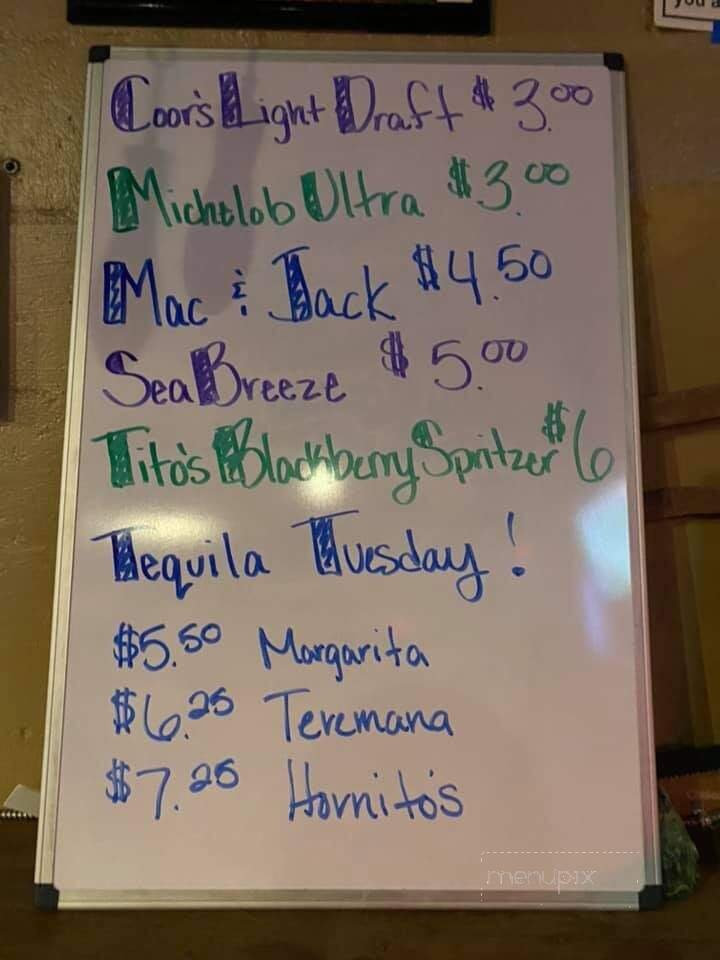 Coor's Light Draft $3.00
Michelob Ultra $3.00
Mac & Jack $4.50
Sea Breeze $5.00
Tito's Blackberry Spritzer $6
Tequila Tuesday!
$5.50 Margarita
$6.25 Teremana
$7.25 Hornito's
menupix